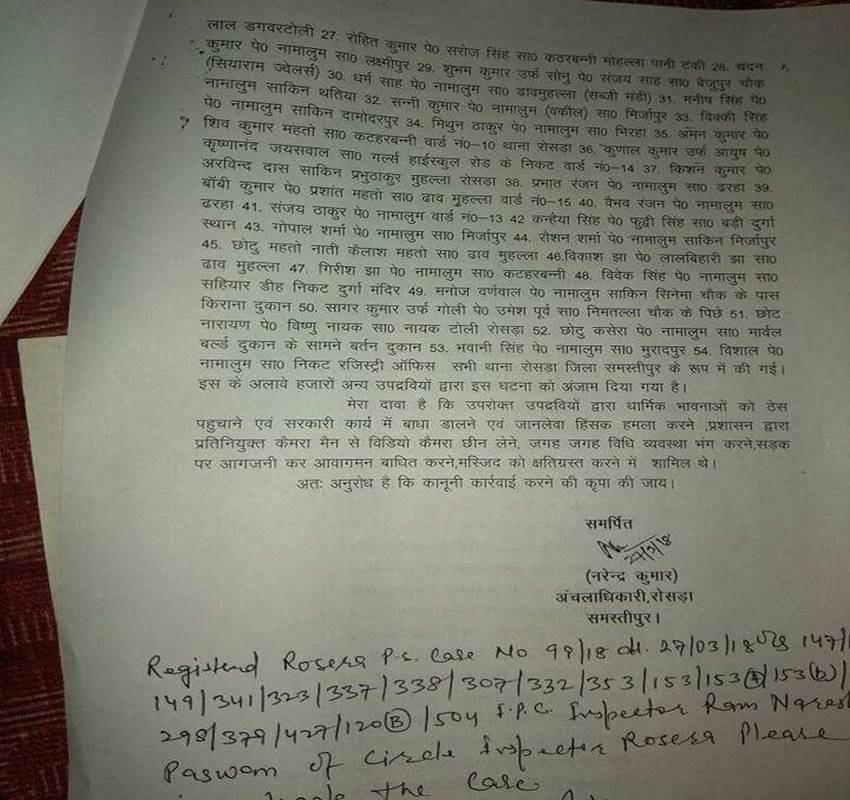 लाल डगवरटोली 27. रोहित कुमार पे0 सरोज सिंह सा0 कठरबन्नी मोहल्ला पानी टंकी 28. चंदन
कुमार पे0 नामालुम सा0 लक्ष्मीपुर 29. शुभम कुमार उर्फ सोनु पे0 संजय साह सा0 बेजुपुर चौक
(सियाराम ज्वेलर्स) 30. धर्म साह पे0 नामालुम सा0 ढावमुहल्ला (सब्जी मंडी) 31. मनीष सिंह पे0
नामालुम साकिन थतिया 32. सन्नी कुमार पे0 नामालुम (वकील) सा0 मिर्जापुर 33. विक्की सिंह
पे0 नामालुम साकिन दामोदरपुर 34. मिथुन ठाकुर पे0 नामालुम सा0 भिरहा 35. अमन कुमार पे0
शिव कुमार महतो सा0 कटहरबन्नी वार्ड नं0–10 थाना रोसडा 36. कुणाल कुमार उर्फ आयुष पे0
कृष्णानंद जयसवाल सा0 गर्ल्स हाईस्कुल रोड के निकट वार्ड नं0–14 37. किशन कुमार पे0
अरविन्द दास साकिन प्रभुठाकुर मुहल्ला रोसडा 38. प्रभात रंजन पे0 नामालुम सा0 ढरहा 39.
बॉबी कुमार पे0 प्रशांत महतो सा0 ढाव मुहल्ला वार्ड नं0–15 40. वैभव रंजन पे0 नामालुम सा0
ढरहा 41. संजय ठाकुर पे0 नामालुम वार्ड नं0–13 42 कन्हैया सिंह पे0 फुद्दी सिंह सा0 बड़ी दुर्गा
स्थान 43. गोपाल शर्मा पे0 नामालुम सा0 मिर्जापुर 44. रौशन शर्मा पे0 नामालुम साकिन मिर्जापुर
45. छोटु महतो नाती कैलाश महतो सा0 ढाव मुहल्ला 46.विकाश झा पे0 लालबिहारी झा सा0
ढाव मुहल्ला 47. गिरीश झा पे0 नामालुम सा0 कटहरबन्नी 48. विवेक सिंह पे0 नामालुम सा0
सहियार डीह निकट दुर्गा मंदिर 49. मनोज वर्णवाल पे0 नामालुम साकिन सिनेमा चौक के पास
किराना दुकान 50. सागर कुमार उर्फ गोली पे0 उमेश पूर्व सा0 निमतल्ला चौक के पिछे 51. छोट
नारायण पे0 विष्णु नायक सा0 नायक टोली रोसड़ा 52. छोटु कसेरा पे0 नामालुम सा0 मार्वल
बर्ल्ड दुकान के सामने बर्तन दुकान 53. भवानी सिंह पे0 नामालुम सा0 मुरादपुर 54. विशाल पे0
नामालुम सा0 निकट रजिस्ट्री ऑफिस सभी थाना रोसडा जिला समस्तीपुर के रूप में की गई।
इस के अलावे हजारों अन्य उपद्रवियों द्वारा इस घटना को अंजाम दिया गया है।
मेरा दावा है कि उपरोक्त उपद्रवियों द्वारा धार्मिक भावनाओं को ठेस
पहुचाने एवं सरकारी कार्य में बाधा डालने एवं जानलेवा हिंसक हमला करने ,प्रशासन द्वारा
प्रतिनियुक्त कैमरा मैन से विडियो कैमरा छीन लेने, जगह जगह विधि व्यवस्था भंग करने,सड़क
पर आगजनी कर आवागमन बाधित करने,मस्जिद को क्षतिग्रस्त करने में शामिल थे।
अतः अनुरोध है कि कानूनी कार्रवाई करने की कृपा की जाय।
समर्पित
27/3/18
(नरेन्द्र कुमार)
अंचलाधिकारी,रोसड़ा
समस्तीपुर।
Registered Rosera P.S. Case No 99/18 dt. 27/03/18 u/s 147/
149/341/323/337/338/307/332/353/153/153(A)/153(b)/
298/379/427/120(B)/504 I.P.C. Inspector Ram Naresh
Paswan of Circle Inspector Rosera Please
the case